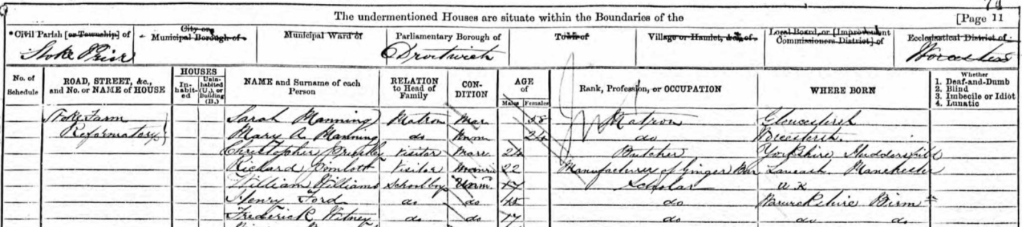 The undermentioned Houses are situate within the Boundaries of the [Page 11
Civil Parish [or Township] of City or Municipal Borough of Municipal Ward of Parliamentary Borough of Town of Village or Hamlet, &c., of Local Board, or [Improvement Commissioners District] of Ecclesiastical District of
Stoke Prior Droitwich
No. of Schedule ROAD, STREET, &c., and No. or NAME of HOUSE HOUSES Inhabited Uninhabited (U.), or Building (B.) NAME and Surname of each Person RELATION to Head of Family CONDITION AGE of Males Females Rank, Profession, or OCCUPATION WHERE BORN Whether 1. Deaf-and-Dumb 2. Blind 3. Imbecile or Idiot 4. Lunatic
Stoke Farm Sarah Manning Matron Mar 58 Matron
Reformatory Mary A Manning do Unm 24 do
Christopher Visitor Marr 24 Butcher Yorkshire Huddersfield
Richard Visitor 22 Manufacturer of Ginger Manchester
William Williams Schoolboy Unm 17 Scholar
Henry Ford do do do Warwickshire Birm
Frederick Witney do do 17 do do do